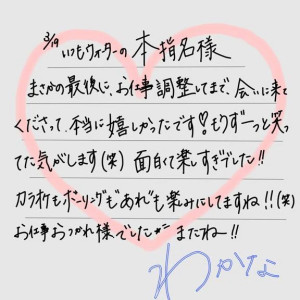 3/19
いつもウォターの本指名様
まさかの最後に、お仕事調整してまで、会いに来て
くださって、本当に嬉しかったです♡もうずーっと笑っ
てた気がします(笑) 面白くて楽しすぎでした!!
カラオケもボーリングも"あれ"も楽しみにしてますね!!(笑)
お仕事おつかれ様でした またねー!!
わかな